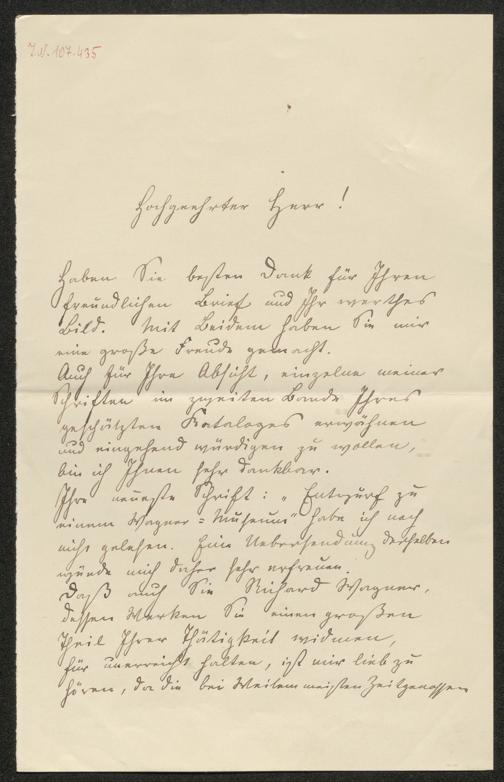 I.N. 107.435
Hochgeehrter Herr!
Haben Sie besten Dank für Ihren
freundlichen Brief und Ihr werthes
Bild. Mit Beidem haben Sie mir
eine große Freude gemacht.
Auch für Ihre Absicht, einzelne meiner
Schriften im zweiten Bande Ihres
geschätzten Kataloges erwähnen
und eingehend würdigen zu wollen,
bin ich Ihnen sehr dankbar.
Ihre neueste Schrift: „Entwurf zu
einem Wagner=Museum" habe ich noch
nicht gelesen. Eine Uebersendung derselben
würde mich daher sehr erfreuen.
Daß auch Sie Richard Wagner,
dessen Werken Sie einen großen
Theil Ihrer Thätigkeit widmen,
für unerreicht halten, ist mir lieb zu
hören, da die bei Weitem meisten Zeitgenossen